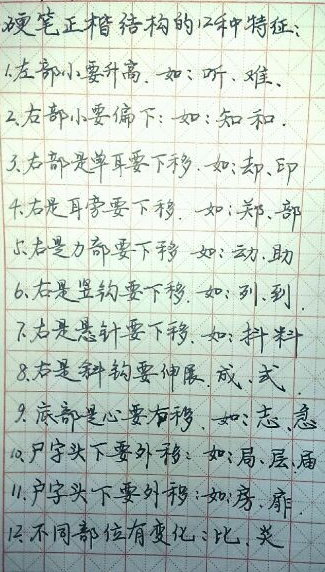 硬笔正楷结构的12种特征：
1.左部小要升高．如：听、难、
2.右部小要偏下：如：知和．
3.右部是单耳要下移．如：却、印
4.右是耳旁要下移．如：郑、部
5.右是力部要下移 如：动、助
6.右是竖钩要下移．如：列、到．
7.右是悬针要下移．如：抖料
8.右是斜钩要伸展．成、式．
9.底部是心要右移．如：志、急
10.尸字头下要外移：如：局、层、届
11.户字头下要外移：如：房、扉．
12.不同部位有变化：比、炎